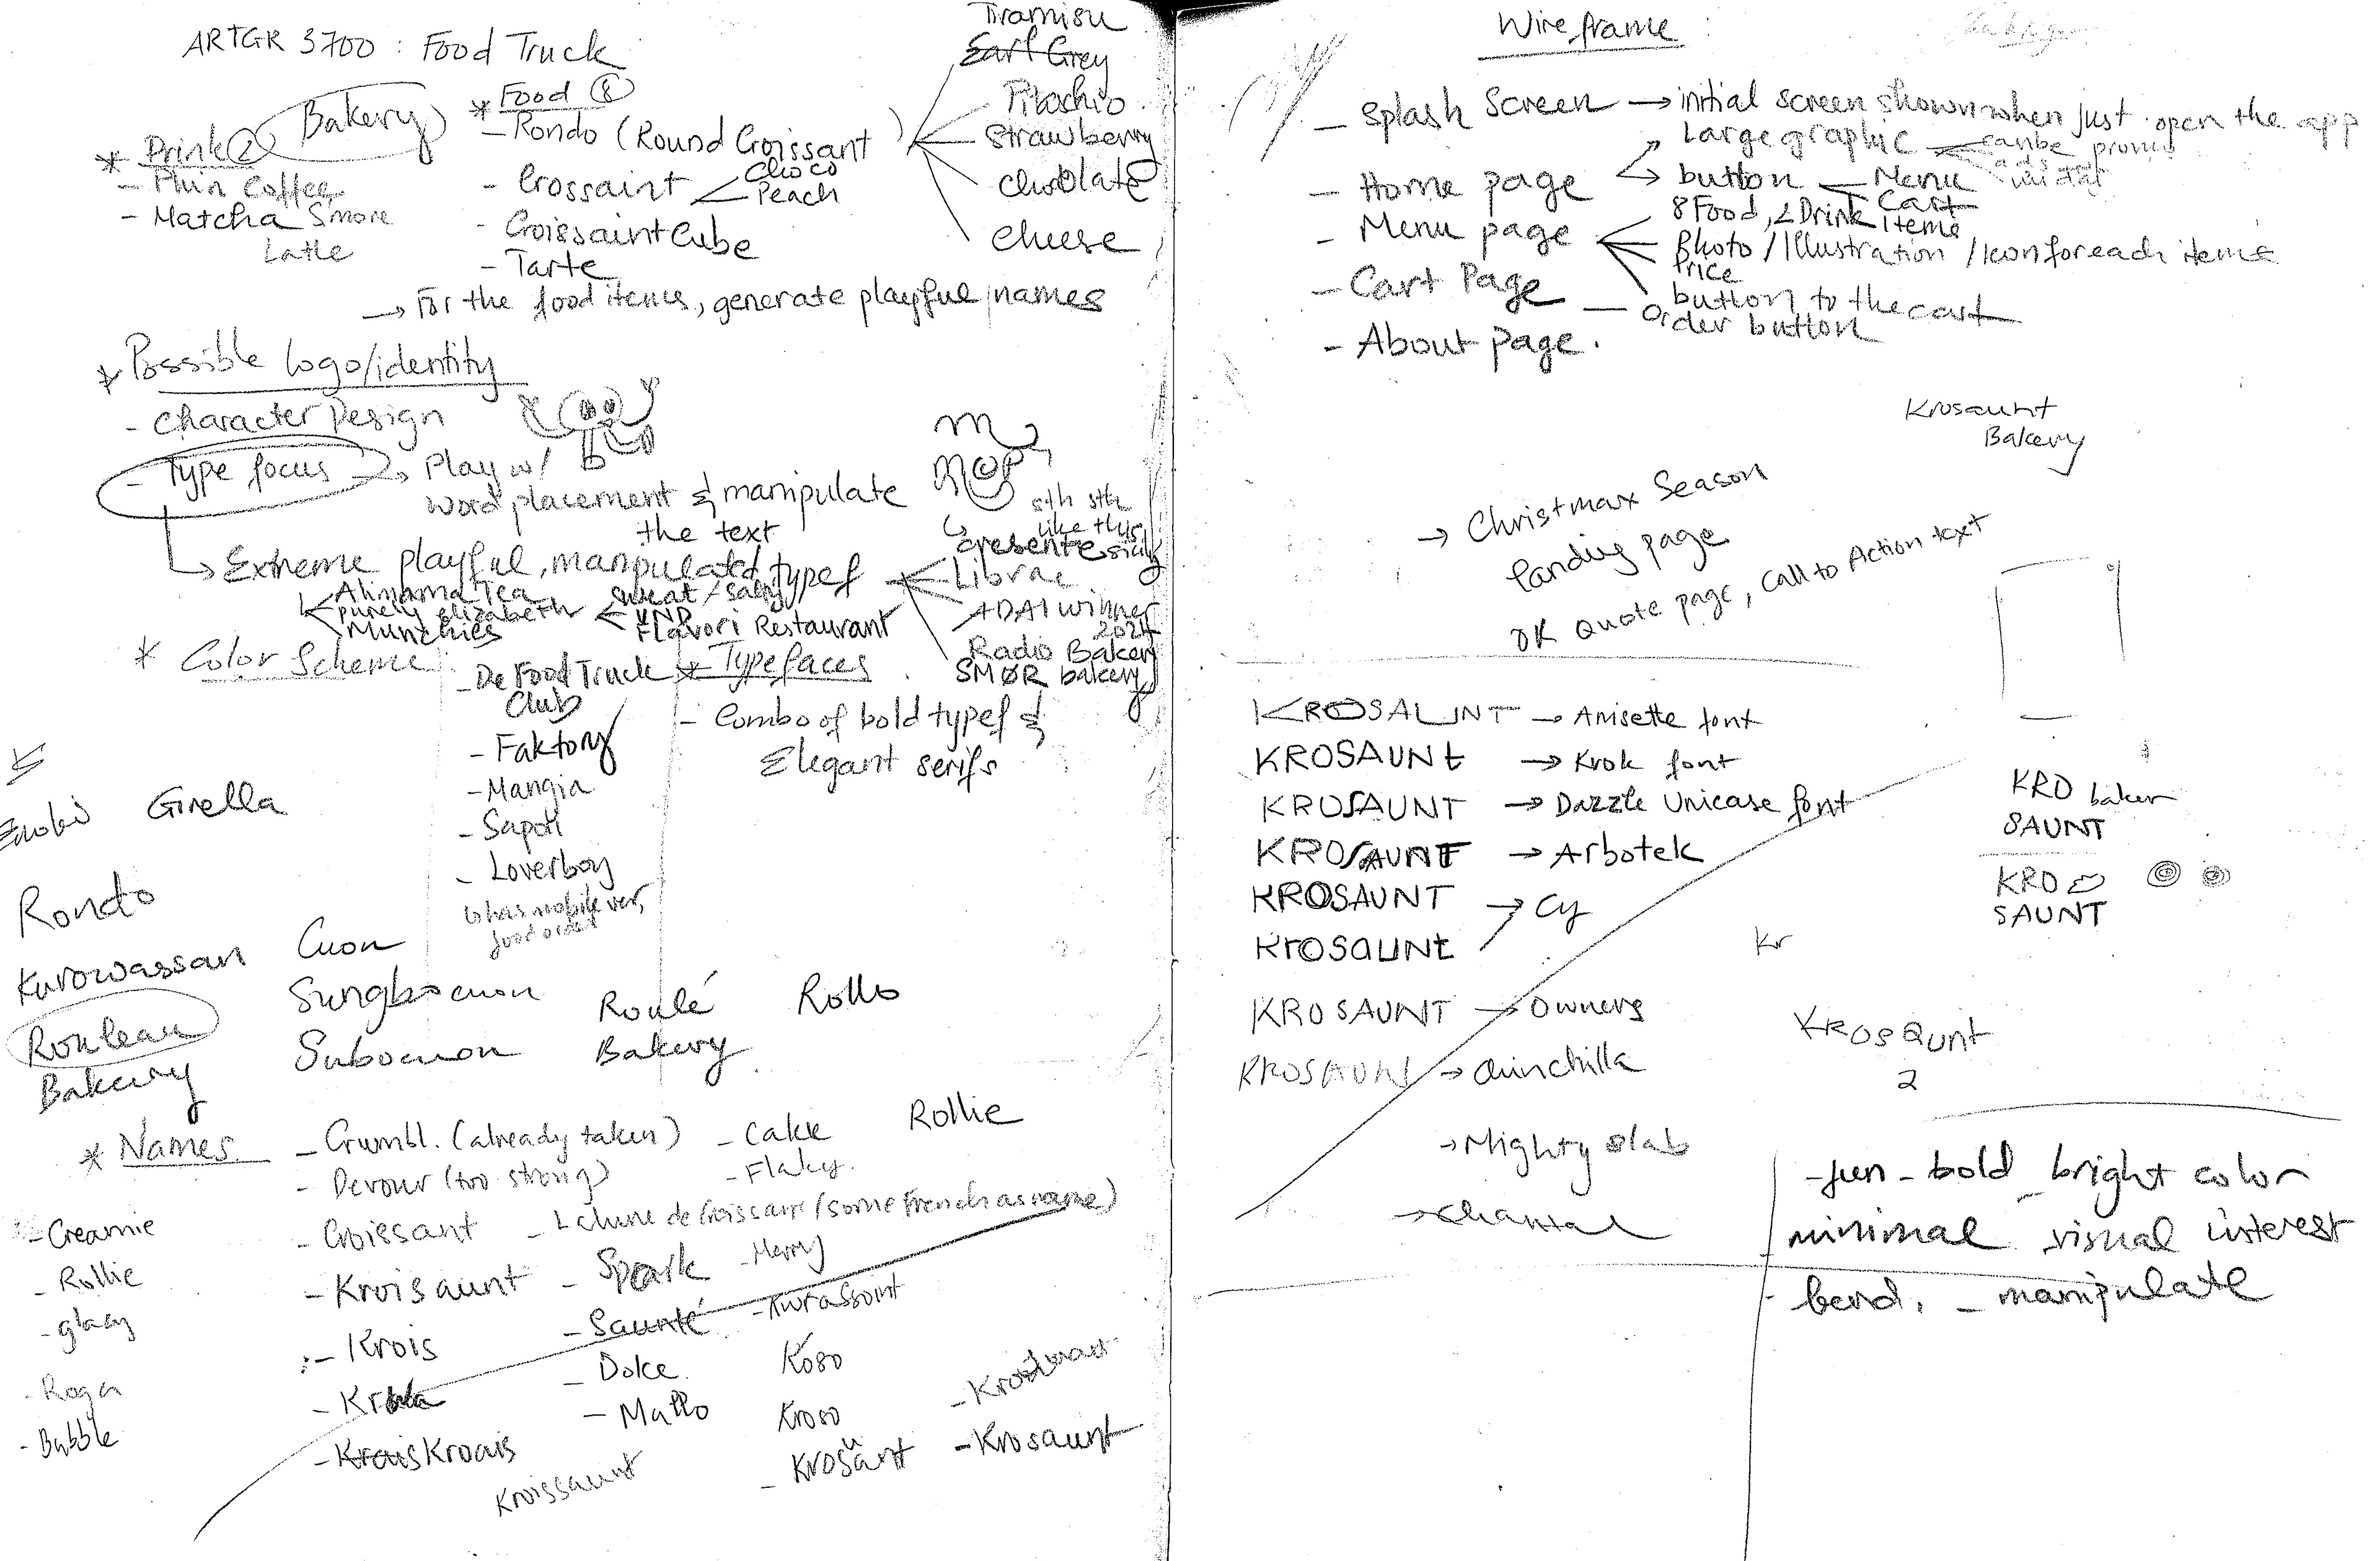 ARTGR 3700 : Food Truck
Bakery
* Drink 2
- Phin Coffee
- Matcha S'more
Latte
* Food 8
- Rondo (Round Croissant)
Tiramisu
Earl Grey
Pitachio
Strawberry
Chocolate
cheese
- Crossaint
Choco
Peach
- Croissaint Cube
- Tarte
→ For the food items, generate playful names
* Possible logo/identity
- Character Design
- Type focus → Play w/
word placement & manipulate
the text
sth sth
like this
→ Extreme playful, manipulated typef
Alimama Tea
purely elizabeth
Munchies
VND
Flavori Restaurant
Librae
ADAI winner
2024
Radio Bakery
SMØR bakery
* Color Scheme
- De Food Truck
Club
- Faktory
- Mangia
- Sapori
- Loverboy
↳ has mobile ver,
food order
* Typefaces
- Combo of bold typef &
Elegant serifs
Girella
Rondo
Kurowassan
Rouleau
Bakery
Cuon
Sungbocuon
Subocuon
Roulé
Bakery
Rollo
Rollie
* Names
- Crumbl. (already taken)
- Devour (too strong)
- Croissant
- Kroisaunt
- Krois
- KroisKroais
Kroissaunt
- Cake
- Flaky.
- Spark
- Merry
- Saunté
- Dolce
- Matto
- Kurassoint
Koso
Kroso
- Krosant
- Krosaunt
- Creamie
- Rollie
- glazy
- Bubble
Wireframe :
- Splash Screen → initial screen shown when just open the app
- Home page
Large graphic
can be promo
ads
button
Menu
Cart
- Menu page
8 Food, 2 Drink items
Photo / Illustration / Icon for each items
Price
button to the cart
- Cart Page — order button
- About page.
Krosaunt
Bakery
→ Christmax Season
landing page
OR Quote page, Call to Action text
KROSAUNT → Anisette font
KROSAUNt → Krok font
KROSAUNT → Dazzle Unicase font
KROSAUNT → Arbotek
KROSAUNT → Cy
KrOSaUNt
KROSAUNT → Owners
KROSAUNT → Chinchilla
→ Mighty slab
→ Chantal
KRO baker
SAUNT
KRO
SAUNT
Kr
KROSAunt
2
- fun - bold - bright color
minimal - visual interest
- bend. - manipulate